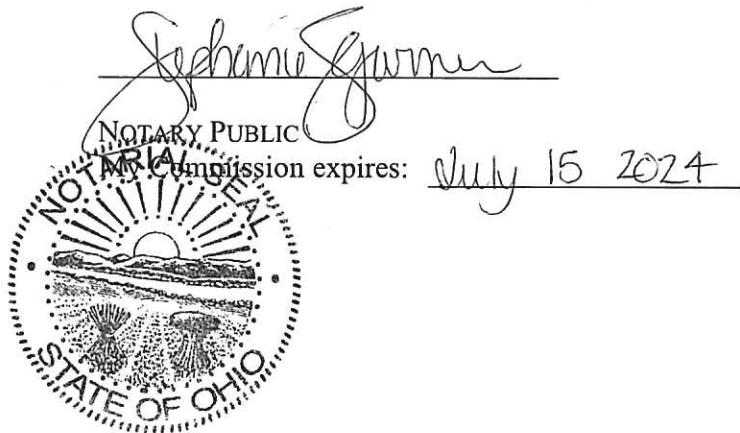 Stephanie
NOTARY PUBLIC
My Commission expires: July 15 2024
NOTARIAL SEAL
STATE OF OHIO